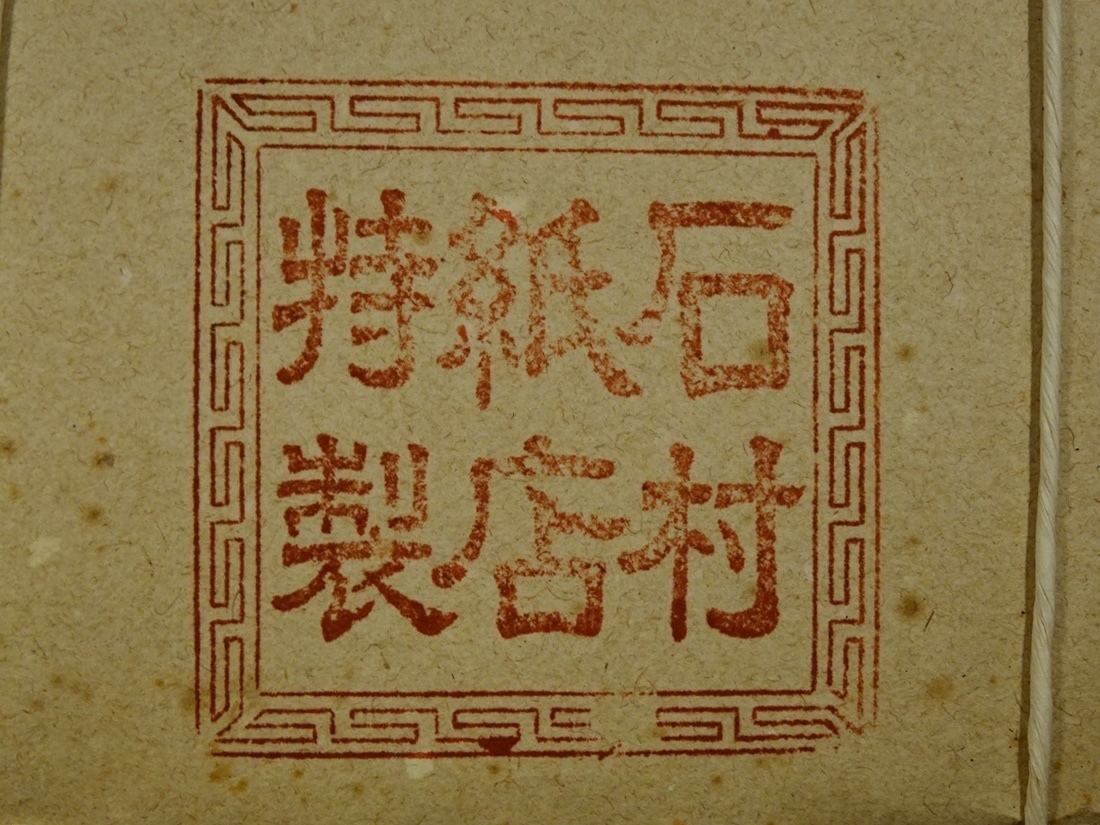 石村
紙店
特製